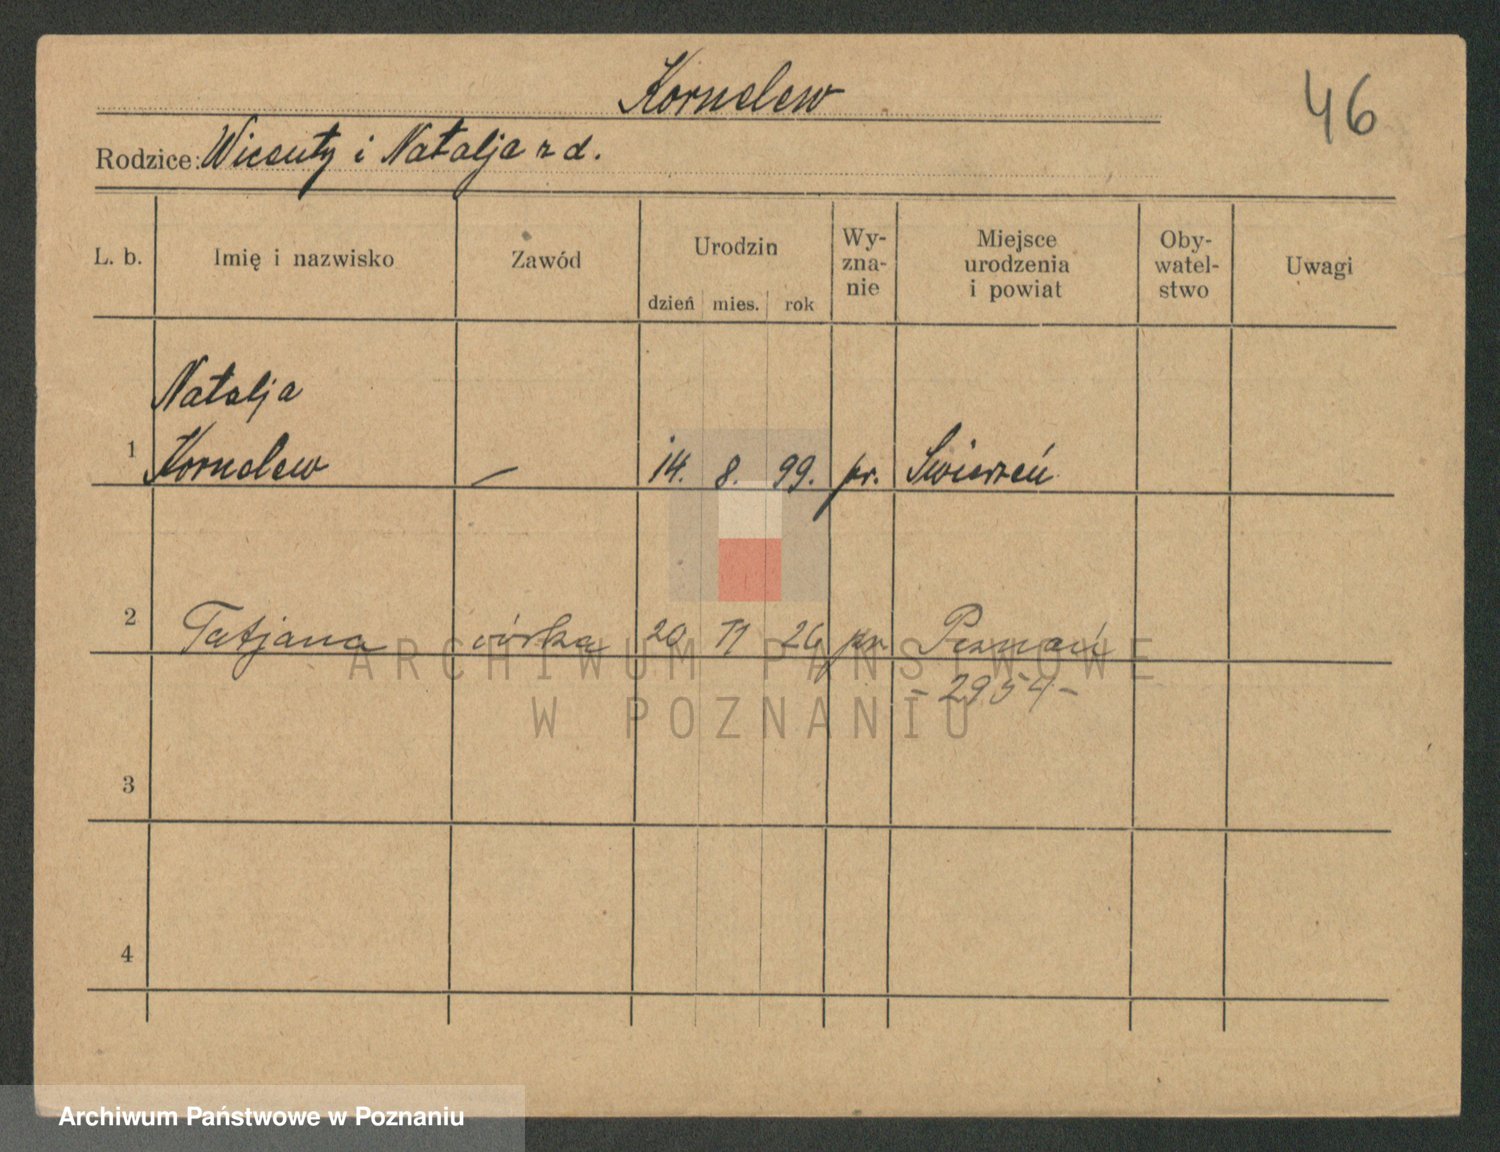 Kornelew
46
Rodzice: Wicenty i Natalja z d.
L. b. Imię i nazwisko Zawód Urodzin Wy-zna-nie Miejsce urodzenia i powiat Oby-watel-stwo Uwagi
dzień mies. rok
Natalja
1 Kornelew — 14. 8. 99. pr. Swierzeń
2 Tatjana córka 20 11 26 pr Poznań
- 2954 -
3
4
ARCHIWUM PAŃSTWOWE
W POZNANIU
Archiwum Państwowe w Poznaniu